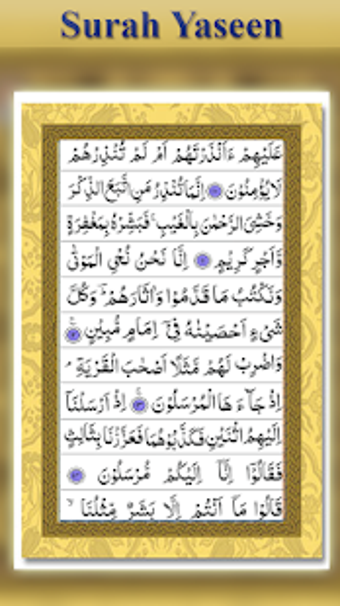 Surah Yaseen
عَلَيْهِمْ ءَاَنْذَرْتَهُمْ اَمْ لَمْ تُنْذِرْهُمْ
لَا يُؤْمِنُوْنَ ۞ اِنَّمَا تُنْذِرُ مَنِ اتَّبَعَ الذِّكْرَ
وَخَشِيَ الرَّحْمٰنَ بِالْغَيْبِ ۚ فَبَشِّرْهُ بِمَغْفِرَةٍ
وَّاَجْرٍ كَرِيْمٍ ۞ اِنَّا نَحْنُ نُحْيِ الْمَوْتٰى
وَنَكْتُبُ مَا قَدَّمُوْا وَاٰثَارَهُمْ ؕ وَكُلَّ
شَيْءٍ اَحْصَيْنٰهُ فِيْۤ اِمَامٍ مُّبِيْنٍ ۞
وَاضْرِبْ لَهُمْ مَّثَلًا اَصْحٰبَ الْقَرْيَةِ ۘ
اِذْ جَآءَهَا الْمُرْسَلُوْنَ ۞ اِذْ اَرْسَلْنَاۤ
اِلَيْهِمُ اثْنَيْنِ فَكَذَّبُوْهُمَا فَعَزَّزْنَا بِثَالِثٍ
فَقَالُوْۤا اِنَّاۤ اِلَيْكُمْ مُّرْسَلُوْنَ ۞
قَالُوْا مَاۤ اَنْتُمْ اِلَّا بَشَرٌ مِّثْلُنَا ۙ